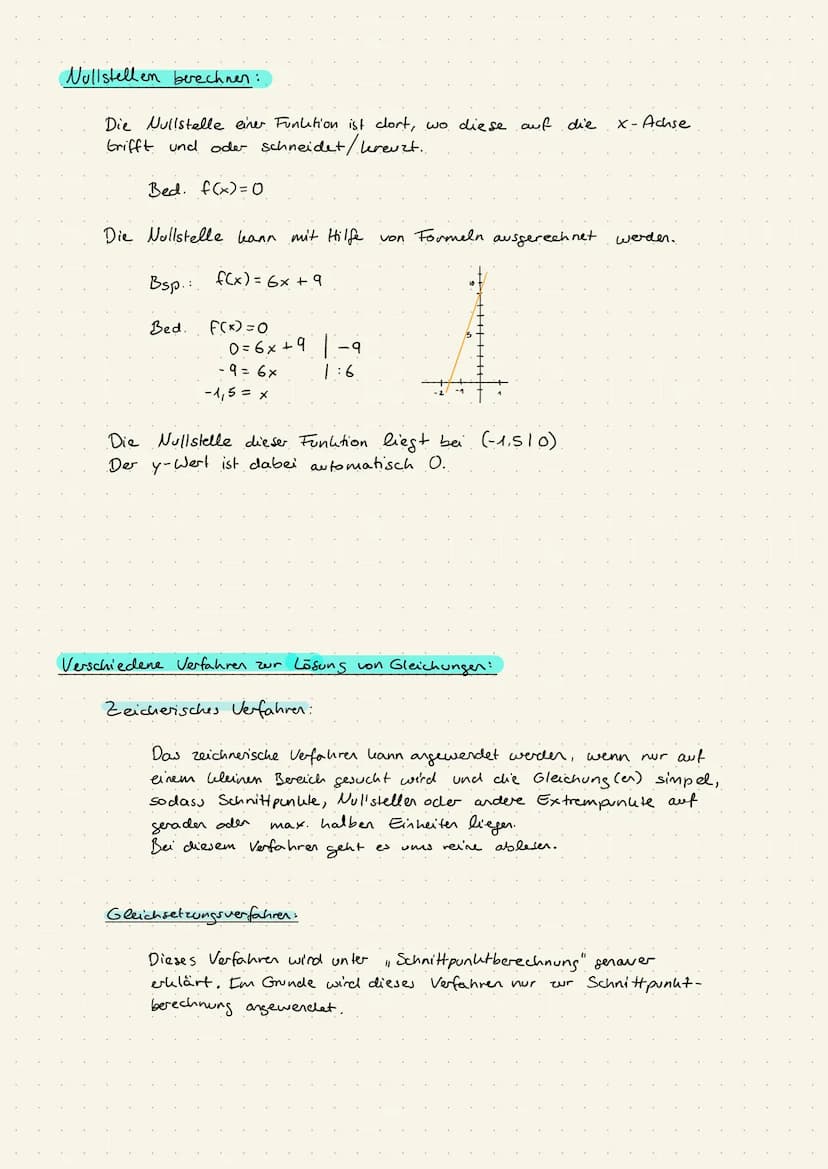 Nullstellen berechnen:
Die Nullstelle einer Funktion ist dort, wo diese auf die x-Achse
trifft und oder schneidet/kreuzt.
Bed. f(x)=0
Die Nullstelle kann mit Hilfe von Formeln ausgerechnet werden.
Bsp.: f(x)=6x+9
Bed. f(x)=0
0=6x+9 | -9
-9=6x | :6
-1,5=x
10
5
-2 -1 1
Die Nullstelle dieser Funktion liegt bei (-1,5|0)
Der y-Wert ist dabei automatisch 0.
Verschiedene Verfahren zur Lösung von Gleichungen:
Zeicherisches Verfahren:
Das zeichnerische Verfahren kann angewendet werden, wenn nur auf
einem kleinen Bereich gesucht wird und die Gleichung(en) simpel,
sodass Schnittpunkte, Nullstellen oder andere Extrempunkte auf
geraden oder max. halben Einheiten liegen.
Bei diesem Verfahren geht es ums reine ablesen.
Gleichsetzungsverfahren:
Dieses Verfahren wird unter „Schnittpunktberechnung" genauer
erklärt. Im Grunde wird dieses Verfahren nur zur Schnittpunkt-
berechnung angewendet.